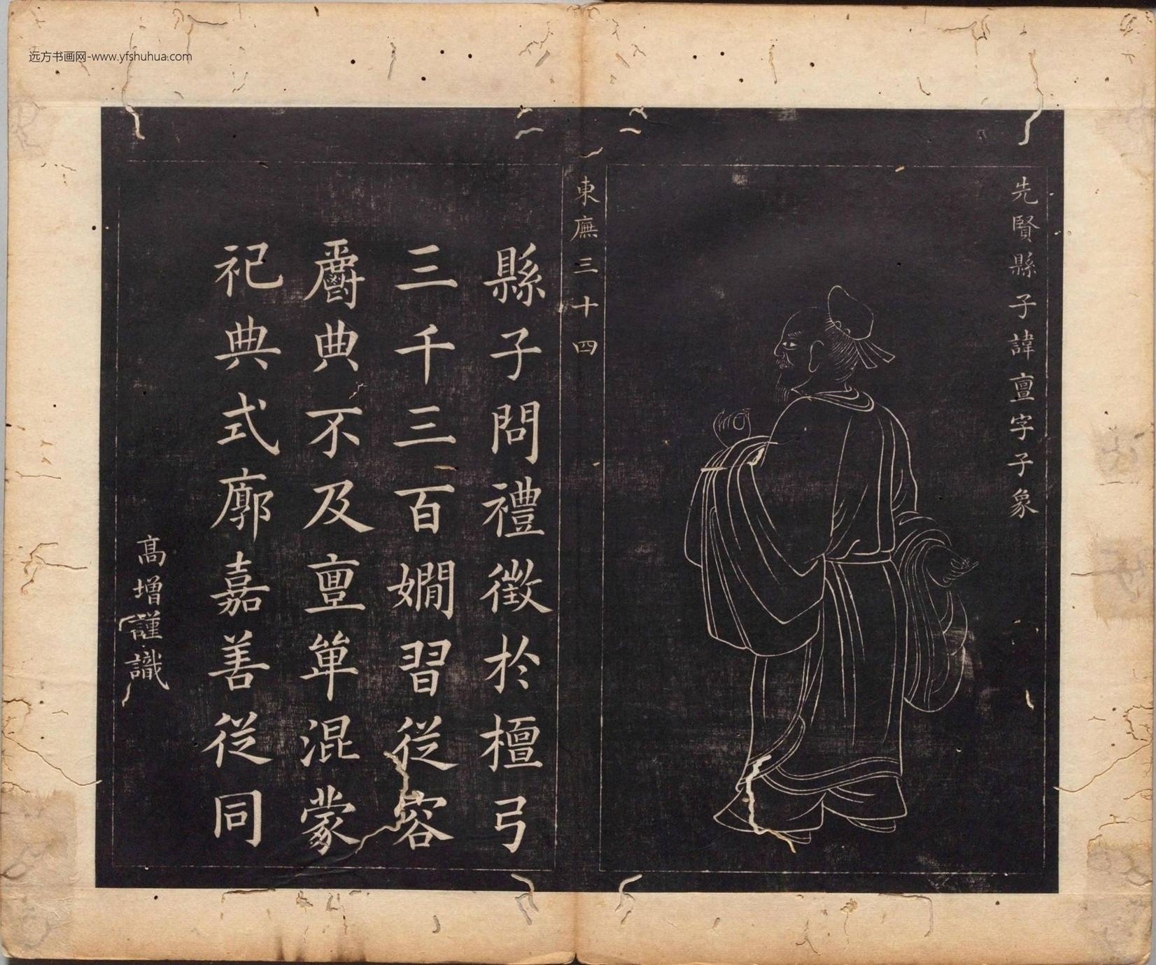 远方书画网-www.yfshuhua.com
先賢縣子諱亶字子象
東廡三十四
縣子問禮徵於檀弓
三千三百嫺習從容
爵典不及亶單混蒙
祀典式廓嘉善從同
高增謹識